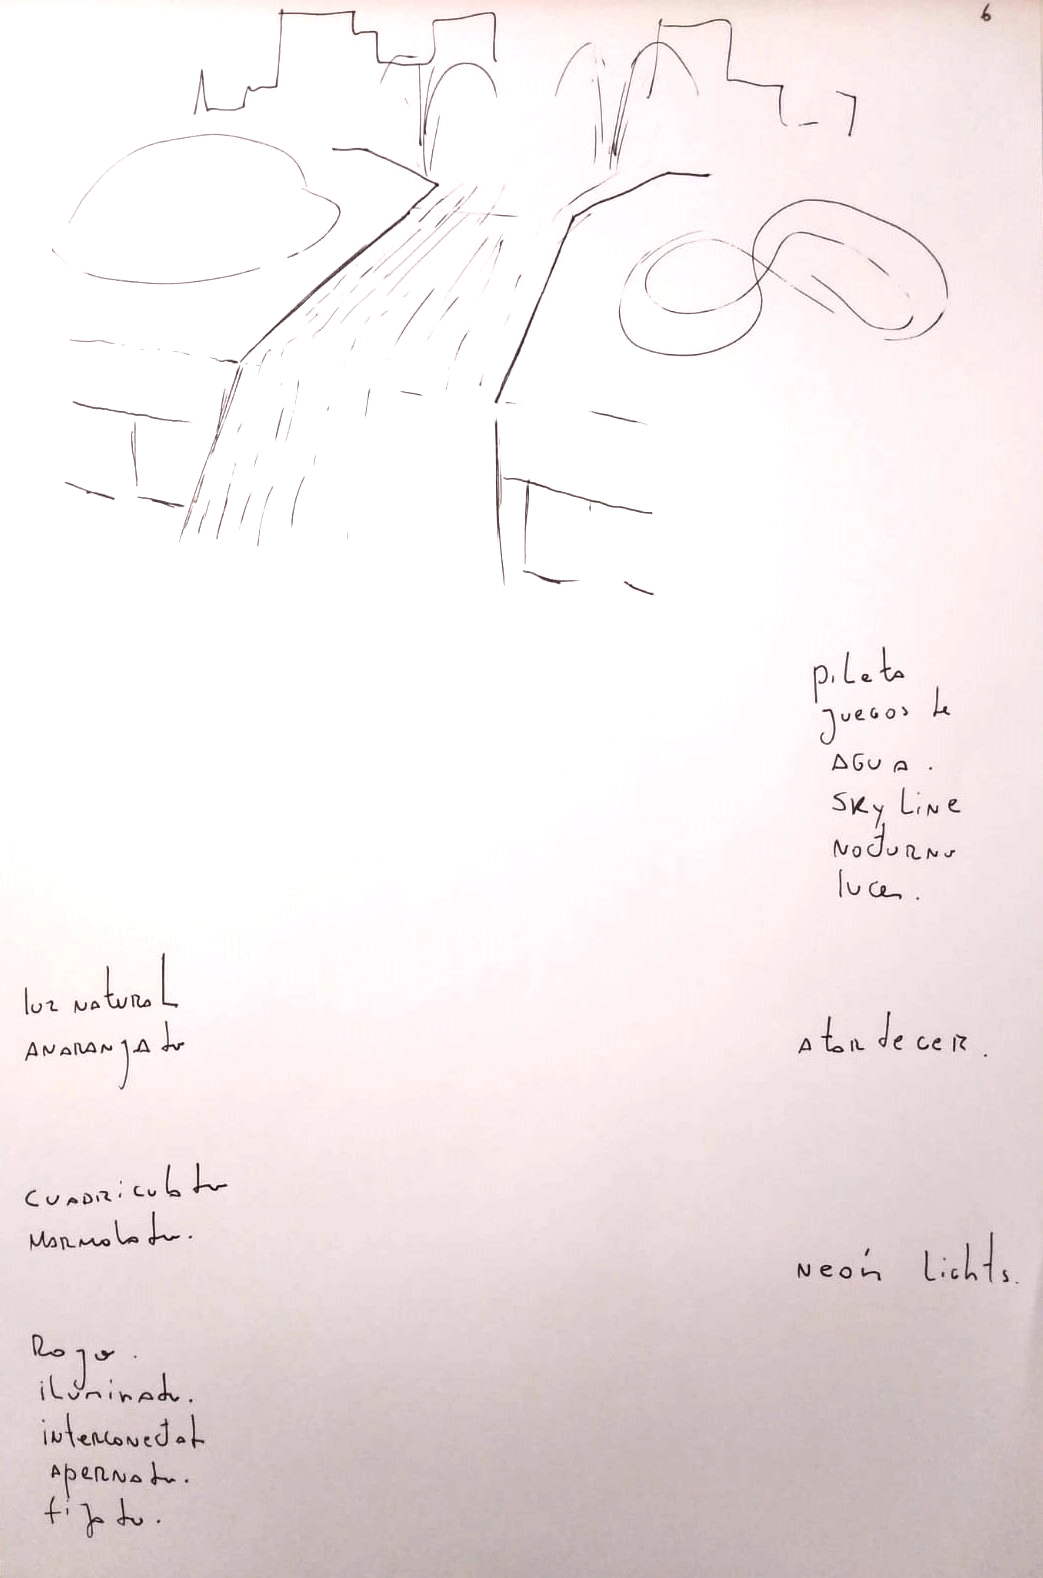 6
pileta
juegos de
AGUA.
SKyLiNe
NOCTURNO
luces.
luz NATURAL
ANARANJAdo
AtaRdeceR.
CUADRiCULado
MARMOLado.
Neón Lichts.
Rojo.
iluminado.
iNteRCONectaR
APeRNado.
fijado.